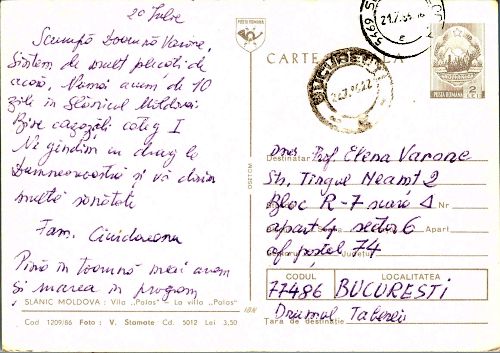 20 Iulie
Scumpă Doamnă Varone,
Sîntem de mult plecați de
acasă. Numai avem de 10
zile în Slănicul Moldova.
Bine cazați categ I
Ne gîndim cu drag la
Dumneavoastră și vă dorim
multă sănătate
Fam.
Pînă în toamnă mai avem
și marea în program
SLĂNIC MOLDOVA: Vila „Palas" — La villa „Palas"
Cod 1209/86 Foto: V. Stamate Cd. 5012 Lei 3,50
OSETCM
POȘTA ROMÂNĂ
CARTE POȘTALĂ
BUCUREȘTI
22.7.86.22
5469
21.7
E
POȘTA ROMÂNĂ
2 LEI
Destinatar Prof Elena Varone
Str. Tîrgul Neamț 2
Bloc R-7 scara 4 Nr
apart 4 sector 6 Apart
of poștal 74
Județul
CODUL LOCALITATEA
77486 BUCUREȘTI
Drumul Taberei
Țara de destinație